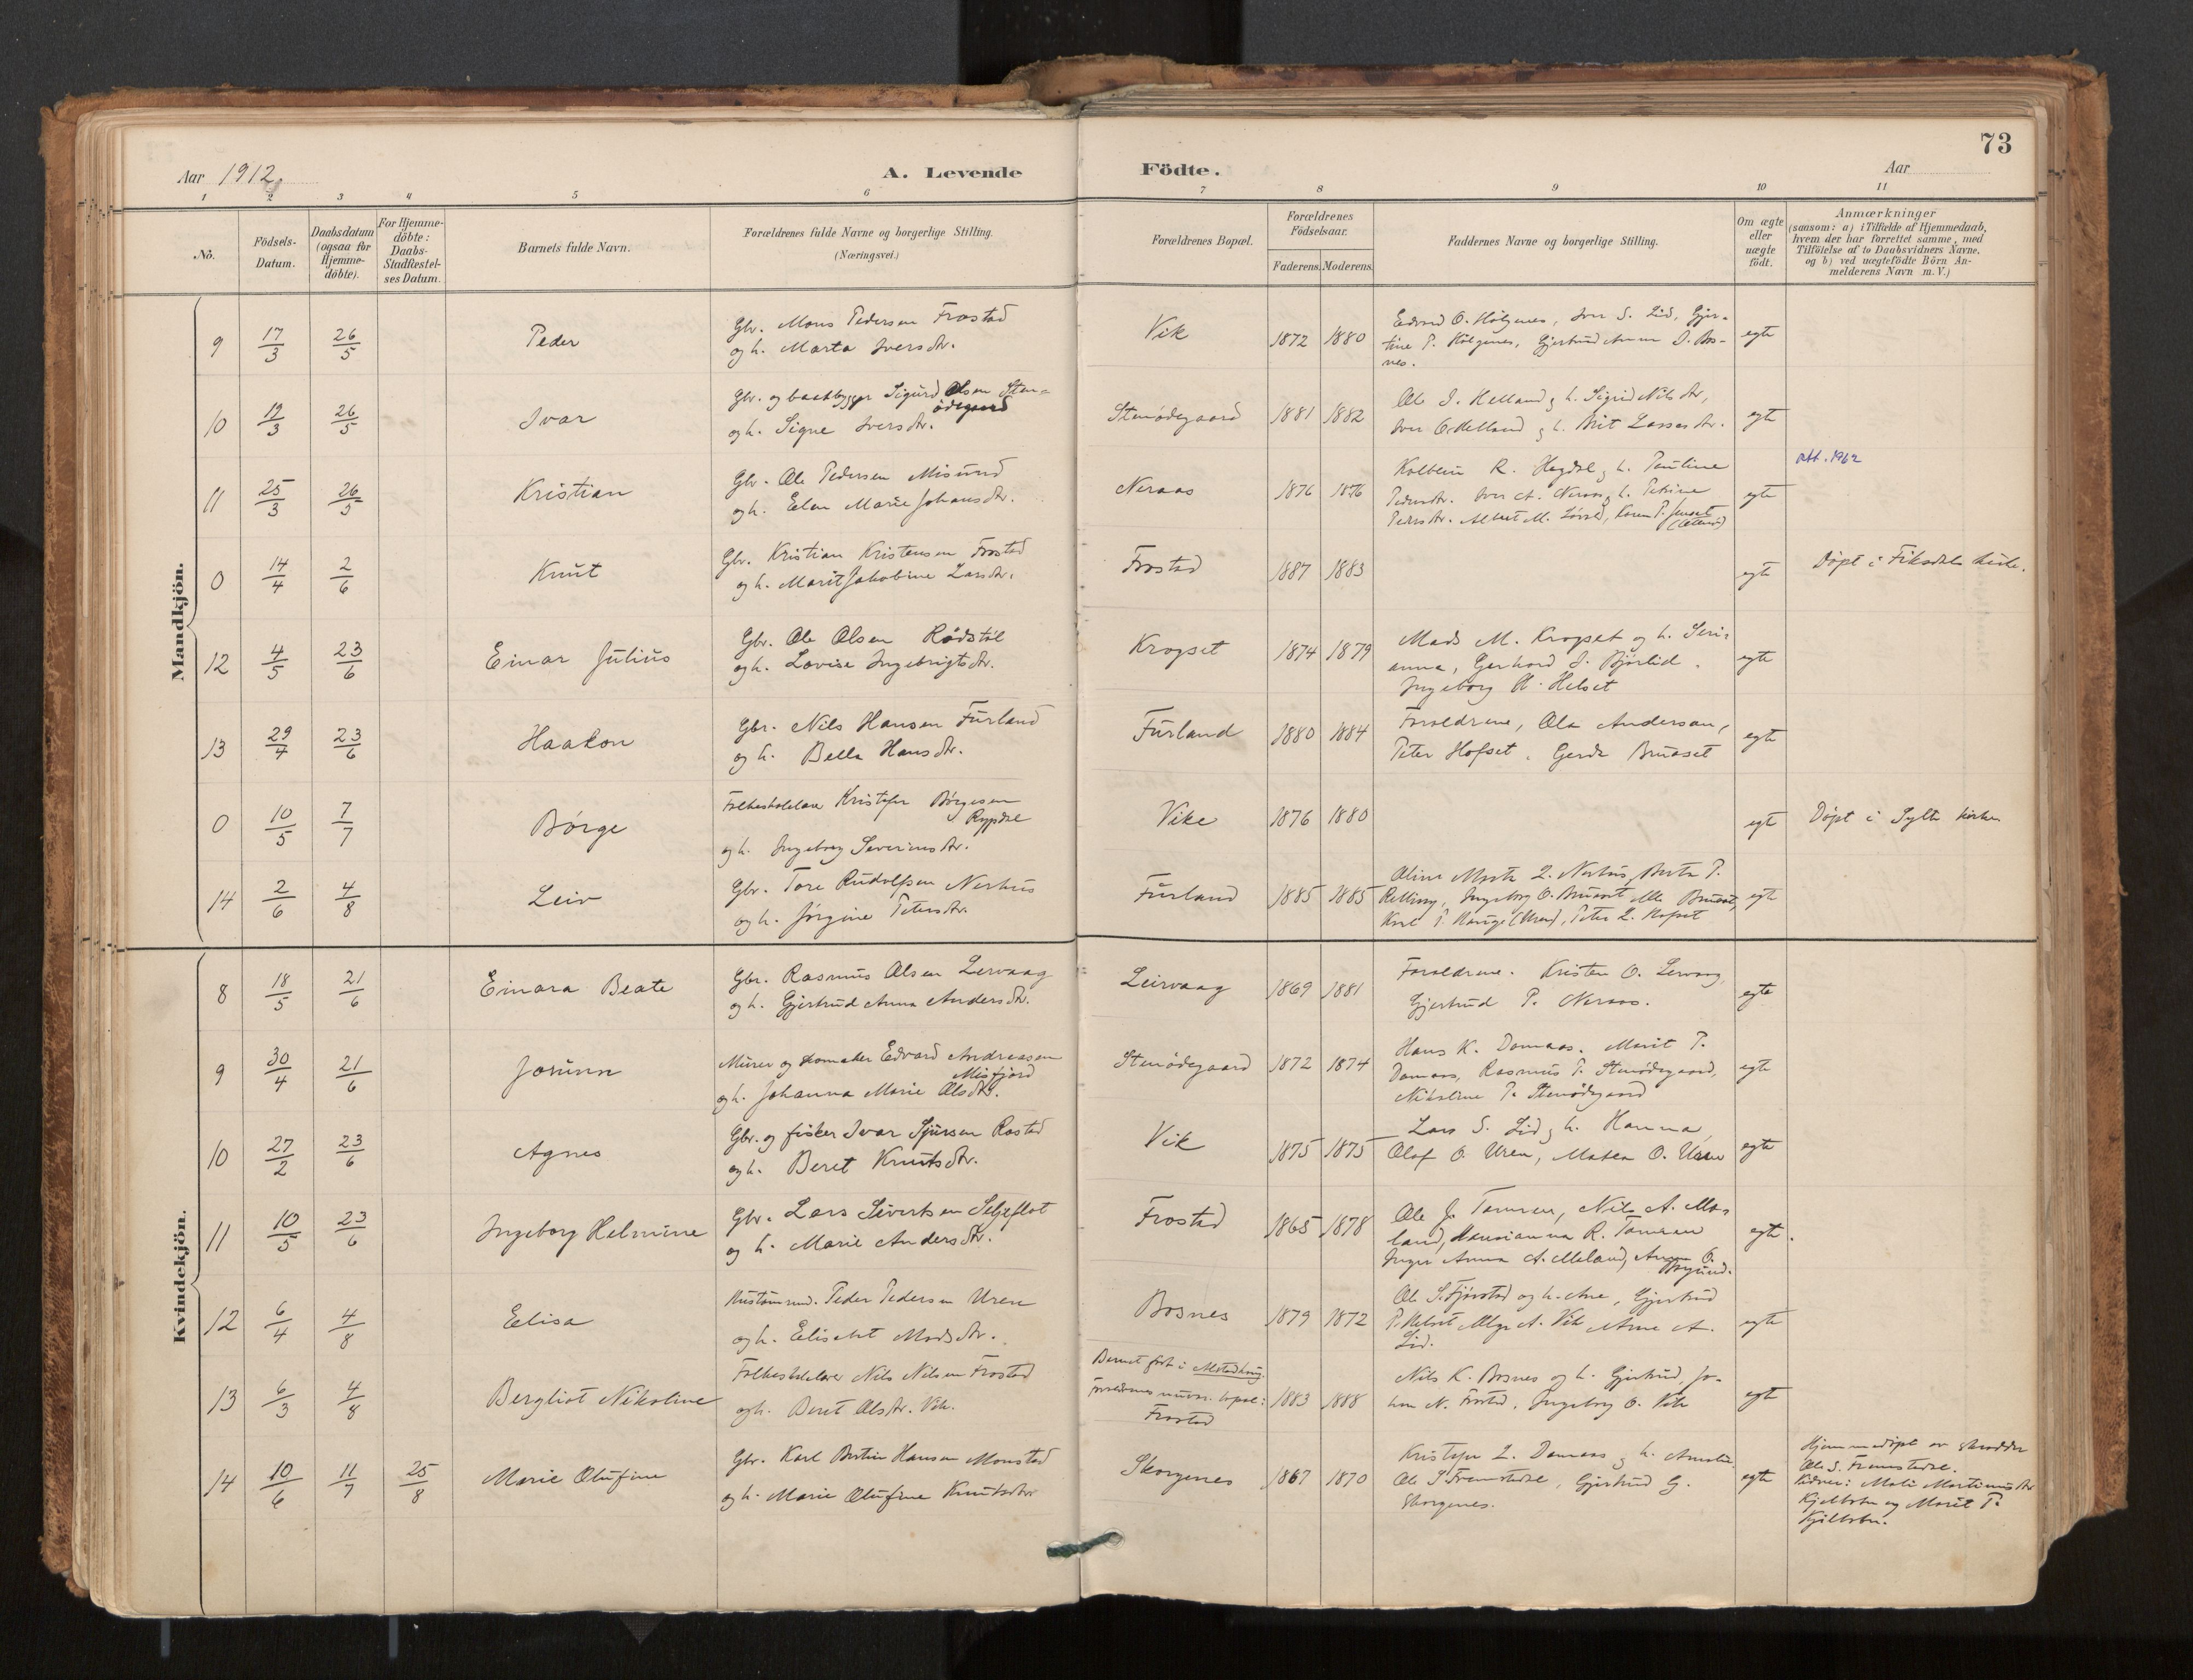 73
Aar 1912.
A. Levende
Födte.
Aar
1 2 3 4 5 6 7 8 9 10 11
No.
Födsels-
Datum.
Daabsdatum
(ogsaa for
Hjemme-
döbte).
For Hjemme-
döbte:
Daabs-
Stadfæstel-
ses Datum.
Barnets fulde Navn.
Forældrenes fulde Navne og borgerlige Stilling.
(Næringsvei.)
Forældrenes Bopæl.
Forældrenes
Födselsaar.
Faderens. Moderens.
Faddernes Navne og borgerlige Stilling.
Om ægte
eller
uægte
födt.
Anmærkninger
(saasom: a) i Tilfælde af Hjemmedaab,
hvem der har forrettet samme, med
Tilföielse af to Daabsvidners Navne,
og b) ved uægtefödte Börn An-
melderens Navn m.V.)
Mandkjön.
9 17/3 26/5 Peder
Gbr. Mons Pedersen Frostad
og h. Marta Iversdtr.
Vik 1872 1880
Edvard O. Hölgenes, Iver S. Lid, Gjer-
tine P. Hölgenes, Gjertrud Anna S. Bos-
nes.
egte
10 19/3 26/5 Ivar
Gbr. og baatbygger Sigurd Olsen Sten-
ödegaard
og h. Signe Iversdtr.
Stenödegaard 1881 1882
Ole I. Helland og h. Sigrid Nilsdtr,
Iver O. Helland og h. Brit Lassesdtr.
egte
11 25/3 26/5 Kristian
Gbr. Ole Pedersen Misund
og h. Elen Marie Johansdtr.
Neraas 1876 1876
Kolbein R. Hagdal og h. Pauline
Pedersdtr. Iver A. Neraas og h. Petrine
Pedersdtr. Albert M. Karen P.
egte
att. 1962
0 14/4 2/6 Knut
Gbr. Kristian Kristensen Frostad
og h. Marit Jakobine Larsdtr.
Frostad 1887 1883
egte
Döpt i Fiksdals kirke.
12 4/5 23/6 Einar Julius
Gbr. Ole Olsen Rödstöl
og h. Lovise Ingebrigtsdtr.
Kropset 1874 1879
Mads M. Kropset og h. Seri-
anna, Gerhard I. Bjørlid.
Ingeborg H. Helset
egte
13 29/4 23/6 Haakon
Gbr. Nils Hansen Furland
og h. Bella Hansdtr.
Furland 1880 1884
Foreldrene, Ola Anderson,
Peter Hofset, Gerda Bruaset
egte
0 10/5 7/7 Børge
Folkeskolelærer Kristofer Børgesen
Rypdal
og h. Ingeborg Severinsdtr.
Vike 1876 1880
egte
Döpt i Sylte kirke
14 2/6 4/8 Leiv
Gbr. Tore Rudolfsen Nerhus
og h. Jørgine Petersdtr.
Furland 1885 1885
L. Nerhus, Berta P.
Relling, Ingeborg O. Bruaset, Bruaset,
P. Hauge (Uren), Peter L. Hofset
egte
Kvindekjön.
8 18/5 21/6 Einara Beate
Gbr. Rasmus Olsen Lervaag
og h. Gjertrud Anna Andersdtr.
Leirvaag 1869 1881
Foreldrene. Kristen O. Lervaag,
Gjertrud P. Neraas.
egte
9 30/4 21/6 Jorunn
Murer og skomaker Edvard Andreassen
Misfjord
og h. Johanna Marie Olsdtr.
Stenödegaard 1872 1874
Hans K. Damaas. Marit P.
Damaas, Rasmus P. Stenödegaard,
Nikoline P. Stenödegaard
egte
10 27/2 23/6 Agnes
Gbr. og fisker Ivar Sjursen Rostad
og h. Beret Knutsdtr.
Vik 1875 1875
Lars S. Lid og h. Hanna,
Olaf O. Uren, Matea O. Uren
egte
11 10/5 23/6 Ingeborg Helmine
Gbr. Lars Sivertsen Seljeflot
og h. Marie Andersdtr.
Frostad 1865 1878
Ole J. Tomren, Nils A. Me-
land, Hansianna R. Tomren
Inger Anna A. Meland, Anna O.
egte.
12 6/4 4/8 Elisa
Peder Pedersen Uren
og h. Elisabet Madsdtr.
Bosnes 1879 1872
Ole S. Fjørstad og h. Ane, Gjertrud
P. Helset A. Vik Anne A.
Lid.
egte
13 6/3 4/8 Bergliot Nikoline
Folkeskolelærer Nils Nilsen Frostad
og h. Beret Olsdtr. Vik.
Barnet født i Alstadhaug.
Foreldrenes nuvær. bopæl:
Frostad
1883 1888
Nils K. Bosnes og h. Gjertrud, Jo-
han N. Frostad, Ingeborg O. Vik
egte
14 10/6 11/7 25/8 Marie Olufine
Gbr. Karl Bertin Hansen Monstad
og h. Marie Olufine Knutsdtr
Skorgenes 1867 1870
Kristofer L. Damaas og h. Amalie
Ole S. Fremstedal, Gjertrud G.
Skorgenes.
egte
Hjemmedöpt av skrædder
Ole S. Fremstedal.
Vidner: Mali Martinusdtr
Kjelbotn og Marit P.
Kjelbotn.